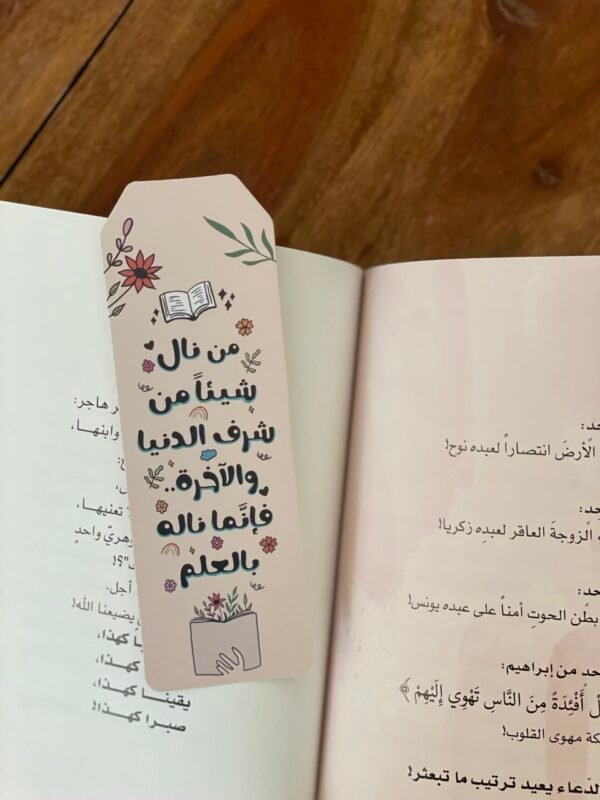 من نال
شيئاً من
شرف الدنيا
والآخرة..
فإنَّما ناله
بالعلم
ر هاجر:
وابنها،
تعنيها،
وهريّ واحدٍ
أجل.
يضيعنا الله!
كهذا،
كهذا،
يقينا كهذا،
صبرا كهذا!
حد:
الأرضَ انتصاراً لعبده نوح!
حد:
الزوجةَ العاقر لعبدِه زكريا!
حد:
بطن الحوتِ أمناً على عبده يونس!
حد من إبراهيم:
أَفْئِدَةً مِنَ النَّاسِ تَهْوِي إِلَيْهِمْ ﴾
كة مهوى القلوب!
الدَعاء يعيد ترتيب ما تبعثر!